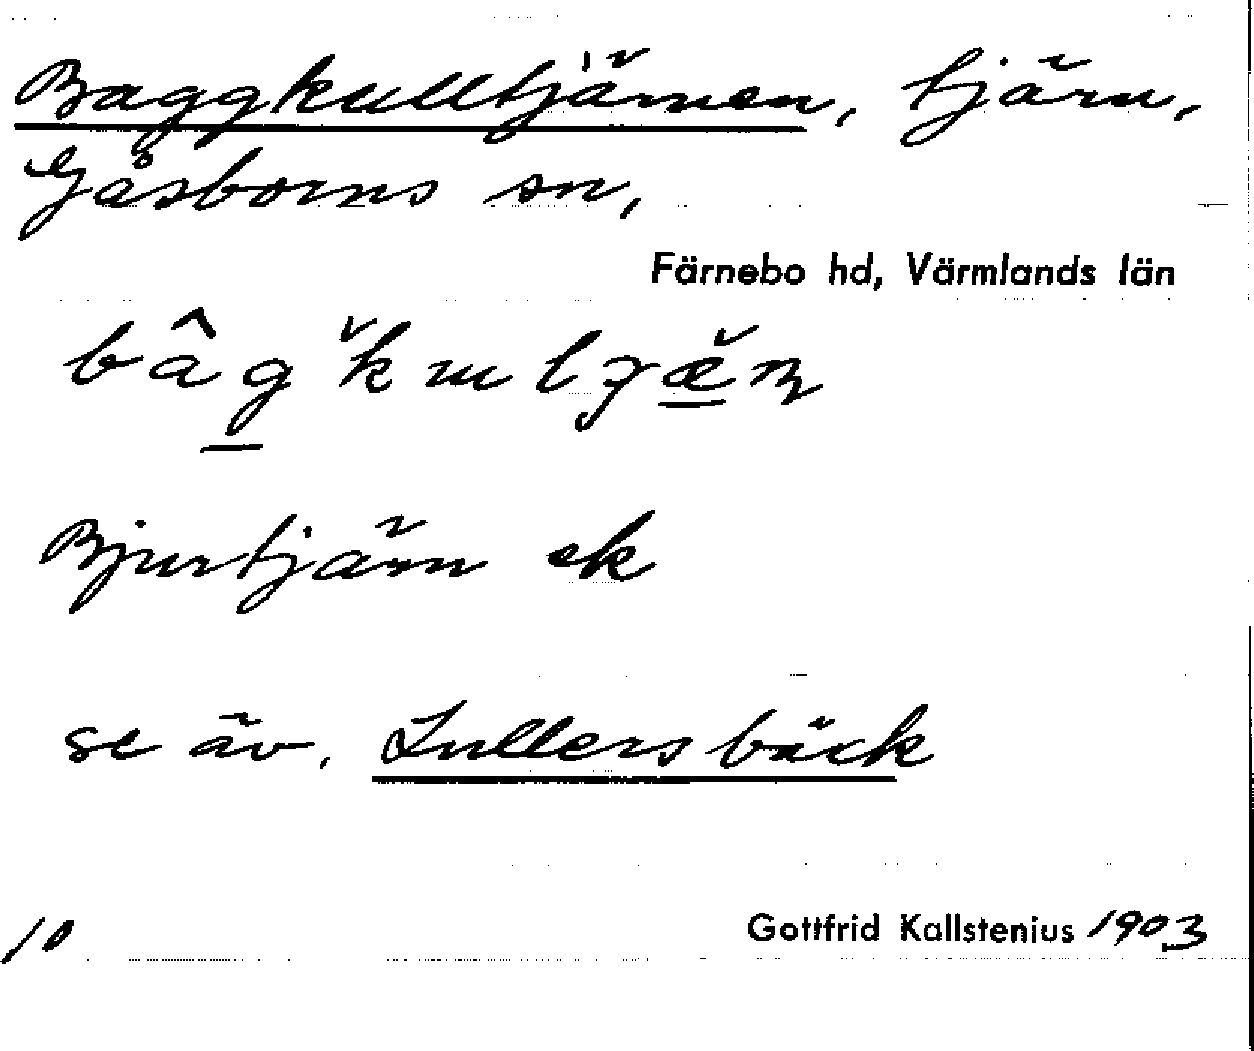 Baggkulltjärnen, tjärn,
Gåsborns sn,
Färnebo hd, Värmlands län
Bjurtjärn ek
se äv. Lullersbäck
10
Gottfrid Kallstenius 1903